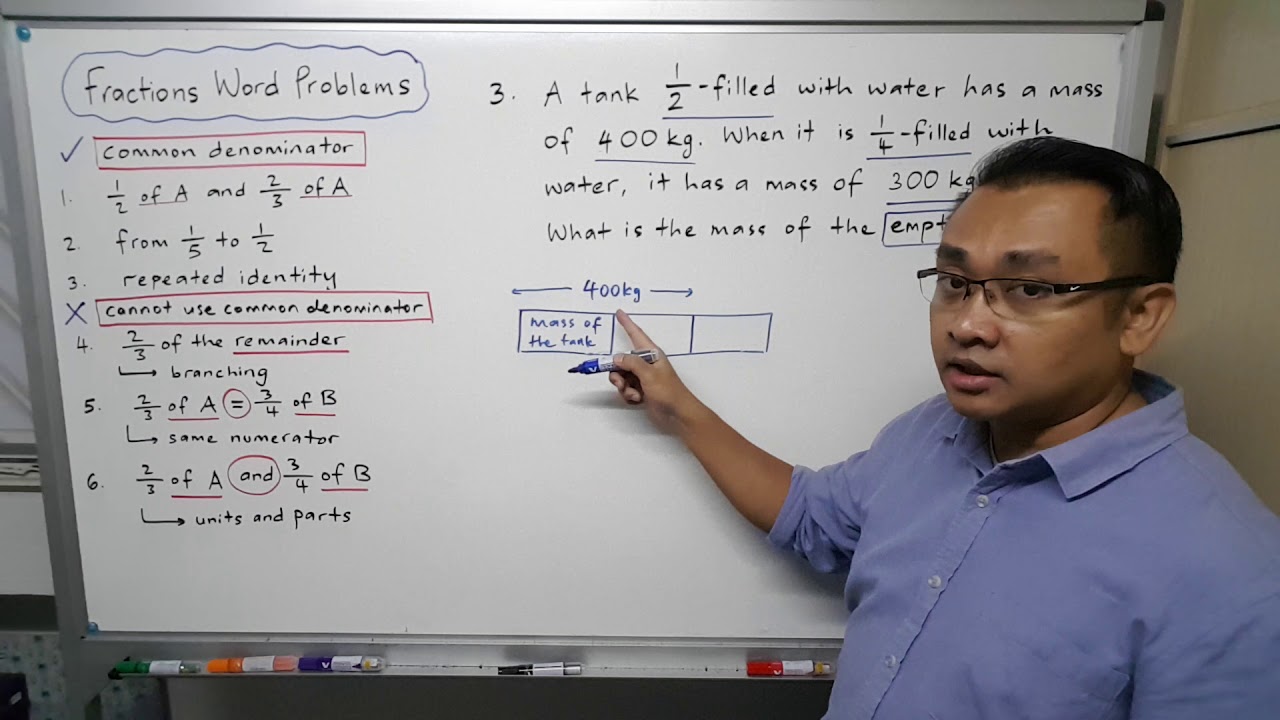 Fractions Word Problems
✓ common denominator
1. 1/2 of A and 2/3 of A
2. from 1/5 to 1/2
3. repeated identity
X cannot use common denominator
4. 2/3 of the remainder
↳ branching
5. 2/3 of A = 3/4 of B
↳ same numerator
6. 2/3 of A and 3/4 of B
↳ units and parts
3. A tank 1/2-filled with water has a mass
of 400 kg. When it is 1/4-filled with
water, it has a mass of 300 kg
What is the mass of the
400kg
mass of
the tank